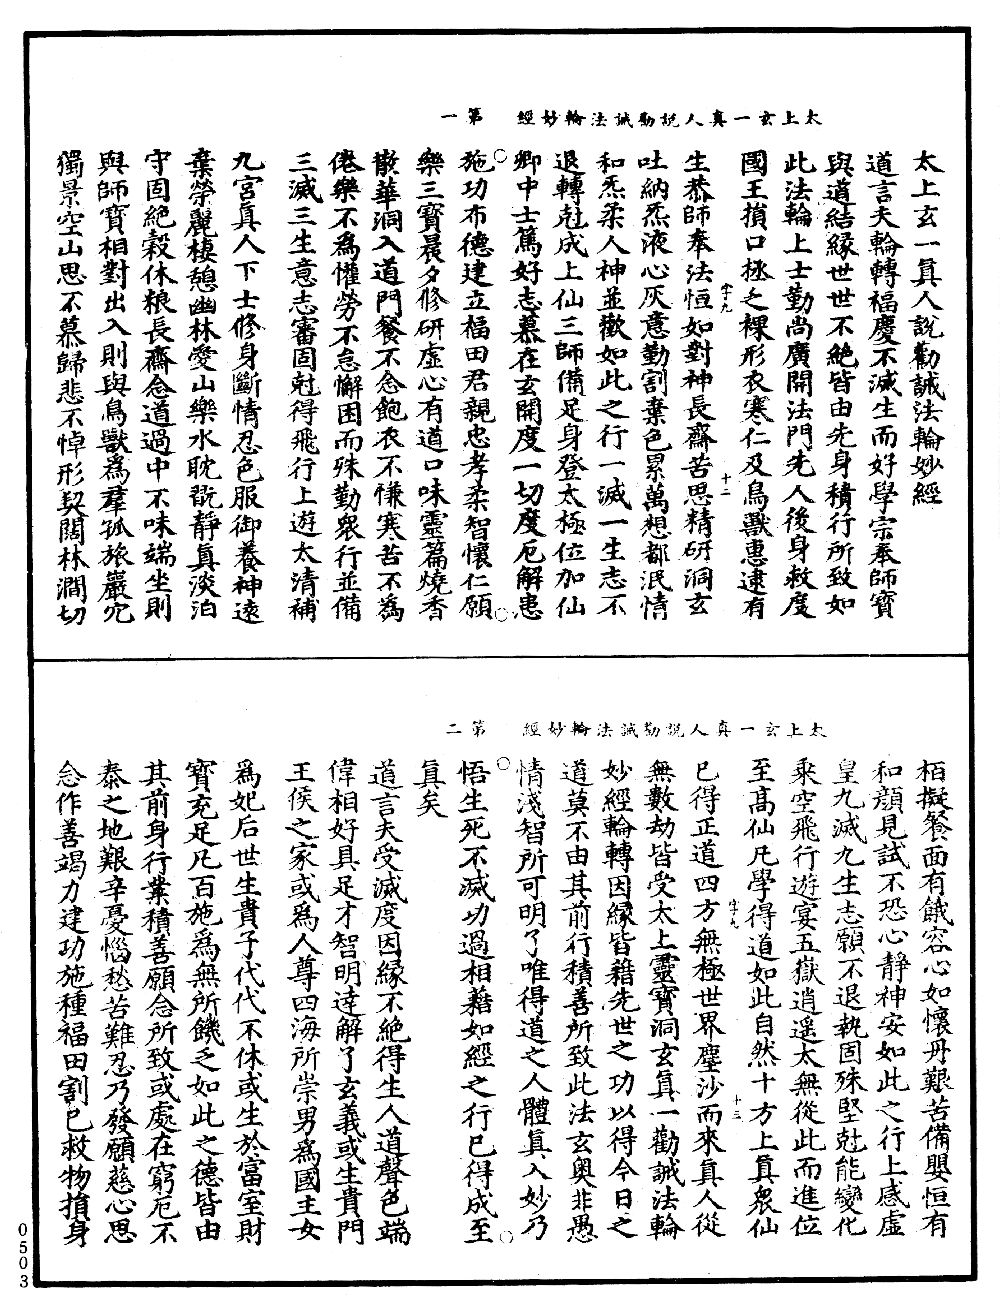 太上玄一真人說勸誡法輪妙經　第一
太上玄一真人說勸誡法輪妙經
道言夫輪轉福慶不滅生而好學宗奉師寶
與道結緣世世不絶皆由先身積行所致如
此法輪上士勤尚廣開法門先人後身救度
國王損口拯之裸形衣寒仁及鳥獸惠逮有
字十九　十二
生恭師奉法恒如對神長齋苦思精研洞玄
吐納炁液心灰意勤割棄色累萬想都泯情
和炁柔人神並歡如此之行一滅一生志不
退轉尅成上仙三師備足身登太極位加仙
卿中士篤好志慕在玄開度一切度厄解患
施功布德建立福田君親忠孝柔智懷仁願
樂三寶晨夕修研虛心有道口味靈篇燒香
散華洞入道門餐不念飽衣不慊寒苦不為
倦樂不為懽勞不怠懈困而殊勤衆行並備
三滅三生意志審固尅得飛行上遊太清補
九宮真人下士修身斷情忍色服御養神遠
棄榮麗棲憩幽林愛山樂水耽翫靜真淡泊
守固絶穀休粮長齋念道過中不味端坐則
與師寶相對出入則與鳥獸爲羣孤旅巖穴
獨景空山思不慕歸悲不悼形契闊林澗切
太上玄一真人說勸誡法輪妙經　第二
栢擬餐面有餓容心如懷丹艱苦備嬰恒有
和顏見試不恐心靜神安如此之行上感虛
皇九滅九生志願不退執固殊堅尅能變化
乘空飛行遊宴五嶽逍遙太無從此而進位
至高仙凡學得道如此自然十方上真衆仙
字十九　十三
已得正道四方無極世界塵沙而來真人從
無數劫皆受太上靈寶洞玄真一勸誡法輪
妙經輪轉因緣皆藉先世之功以得今日之
道莫不由其前行積善所致此法玄奥非愚
情淺智所可明了唯得道之人體真入妙乃
悟生死不滅功過相藉如經之行已得成至
真矣
道言夫受滅度因緣不絶得生人道聲色端
偉相好具足才智明達解了玄義或生貴門
王侯之家或爲人尊四海所崇男爲國主女
爲妃后世生貴子代代不休或生於富室財
寶充足凡百施爲無所饑乏如此之德皆由
其前身行業積善願念所致或處在窮厄不
泰之地艱辛憂惱愁苦難忍乃發願慈心思
念作善竭力建功施種福田割已救物損身
0503